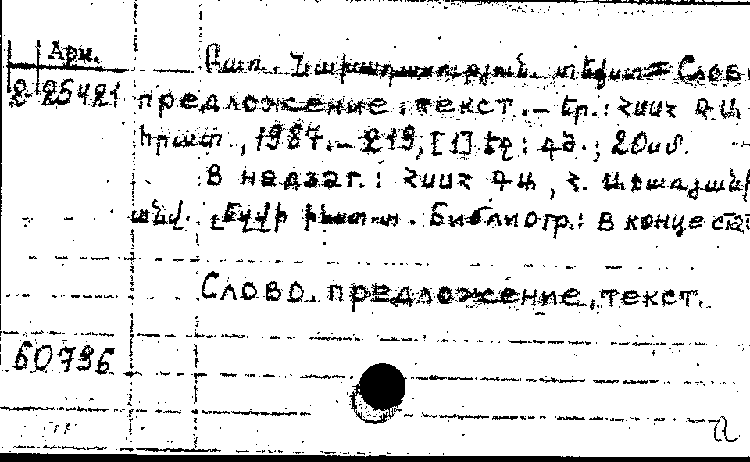 Арм.
Բառ. Նախադասություն. տեքստ = Слово
2 25421 предложение, текст. – Եր.: ՀՍՍՀ ԳԱ
հրատ., 1987. – 219, [1] էջ: գծ.; 20սմ.
В надзаг.: ՀՍՍՀ ԳԱ, Հ. Աճառյանի
անվ. լեզվի ինստ-տ. Библиогр.: в конце ста
Слово. предложение, текст.
60796